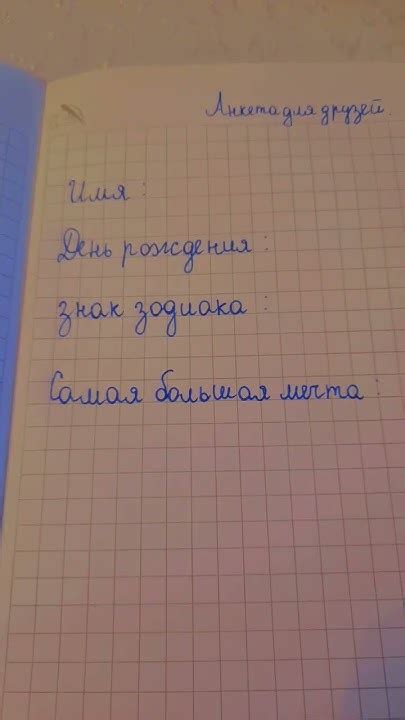 Анкета для друзей.
Имя :
День рождения :
знак зодиака :
Самая большая мечта :